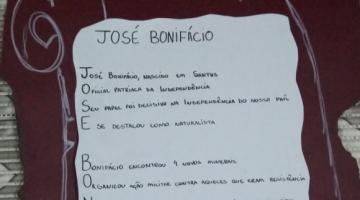 JOSÉ BONIFÁCIO
JOSÉ BONIFÁCIO, NASCIDO EM SANTOS
OFICIAL PATRIACA DA INDEPENDÊNCIA
SEU PAPEL FOI DECISIVO NA INDEPENDÊNCIA DO NOSSO PAÍS
E SE DESTACOU COMO NATURALISTA
BONIFÁCIO ENCONTROU 4 NOVOS MINERAIS
ORGANIZOU AÇÃO MILITAR CONTRA AQUELES QUE ERAM RESISTÊNCIA